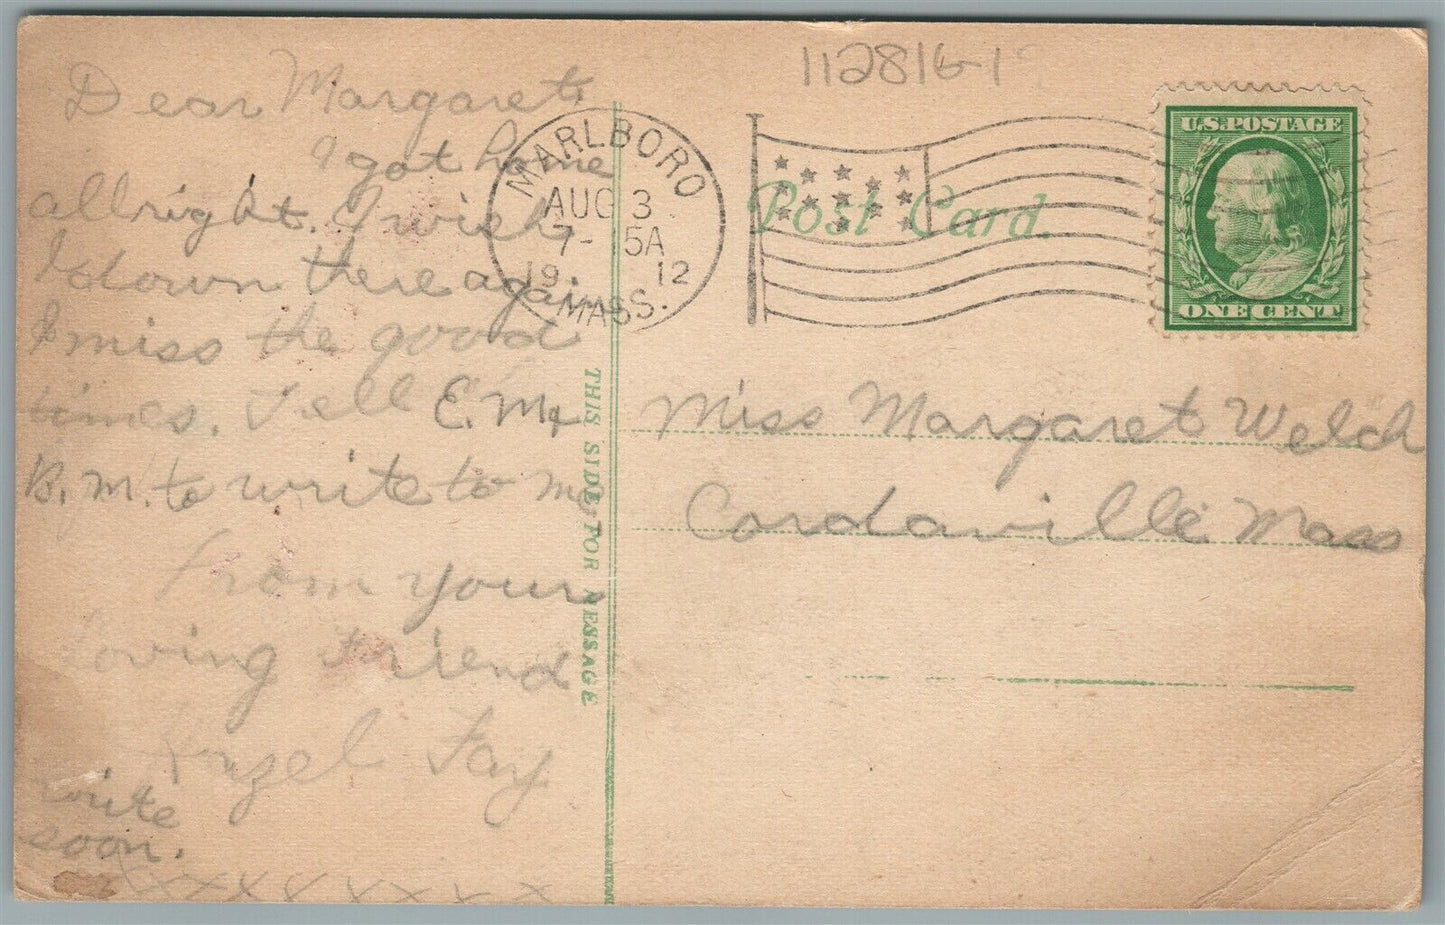 Dear Margaret,
I got home
allright. I wish
I down there again
I miss the good
times. Tell E. M. &
B. M. to write to me,
From your
loving friend
Hazel Fay
write
soon.
XXXXXXXXX
THIS SIDE FOR MESSAGE
MARLBORO
AUG 3
7- 5A
19 12
MASS.
112816-1
Post Card.
U.S. POSTAGE
ONE CENT
Miss Margaret Welch
Cordaville Mass